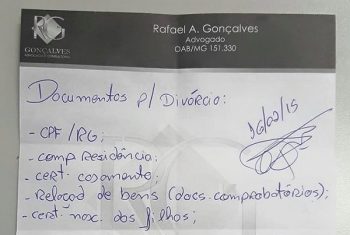 RG
GONÇALVES
Rafael A. Gonçalves
Advogado
OAB/MG 151.330
Documentos p/ Divórcio:
- CPF/RG;
- comp. Residência;
- cert. casamento;
- Relação de bens (docs. comprobatórios);
- cert. nasc. dos filhos;